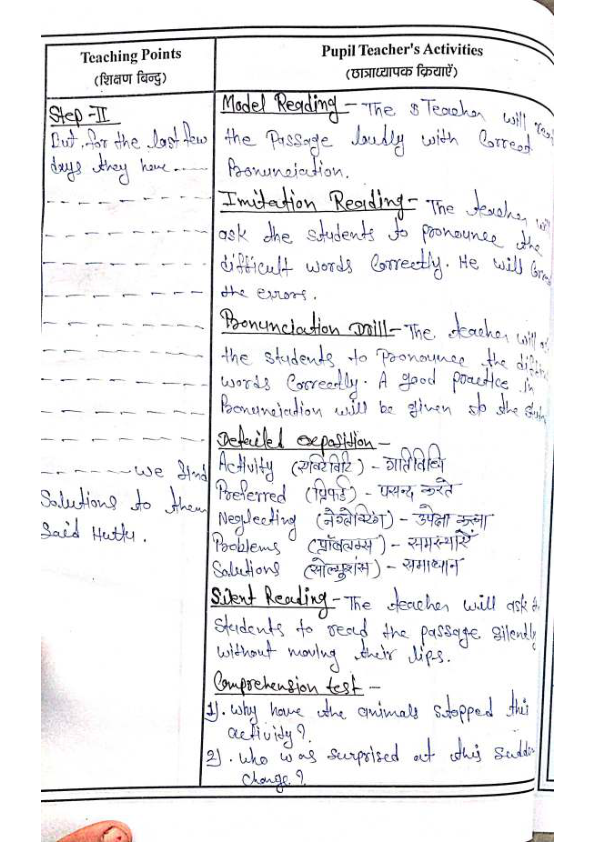 Teaching Points
(शिक्षण बिन्दु)
Pupil Teacher's Activities
(छात्राध्यापक क्रियाएँ)
Step-II
But, for the last few
days they have -----
----- we find
Solutions to them
Said Huttu.
Model Reading - The s Teacher will
the Passage loudly with Correct
Pronunciation.
Imitation Reading - The teacher will
ask the students to pronounce the
difficult words Correctly. He will
the errors.
Pronunciation Drill - The teacher will
the students to Pronounce the
words Correctly. A good practice in
Pronunciation will be given to the
Detailed exposition -
Activity (एक्टिविटि) - गतिविधि
Preferred (प्रिफर्ड) - पसन्द करते
Neglecting (नेग्लेक्टिंग) - उपेक्षा करना
Problems (प्रॉबलम्स) - समस्याएँ
Solutions (सोल्यूशंस) - समाधान
Silent Reading - The teacher will ask
Students to read the passage silently
without moving their lips.
Comprehension test -
1). Why have the animals stopped this
activity?
2). Who was surprised at this
change?